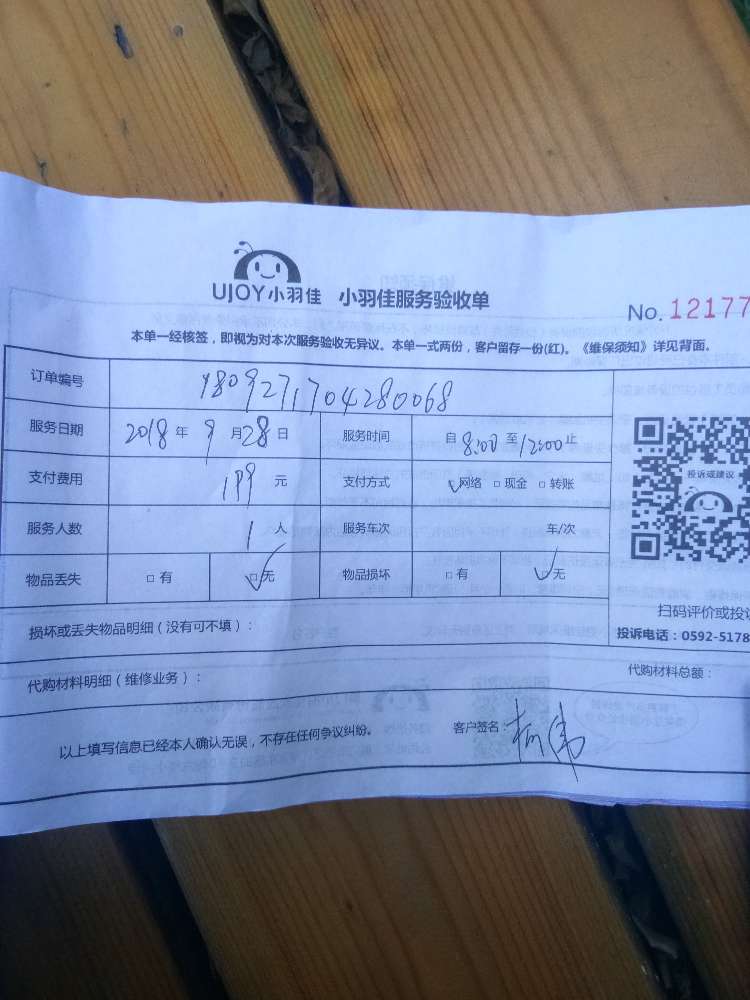 UJOY小羽佳 小羽佳服务验收单
No. 12177
本单一经核签，即视为对本次服务验收无异议。本单一式两份，客户留存一份(红)。《维保须知》详见背面。
订单编号 1809271704280068
服务日期 2018年 9月28日 服务时间 自 8:00 至 12:00 止
支付费用 199 元 支付方式 ☑网络 □现金 □转账
服务人数 1 人 服务车次 车/次
物品丢失 □有 ☑无 物品损坏 □有 ☑无
投诉或建议
扫码评价或投诉
投诉电话：0592-5178
损坏或丢失物品明细（没有可不填）：
代购材料明细（维修业务）： 代购材料总额：
以上填写信息已经本人确认无误，不存在任何争议纠纷。 客户签名：